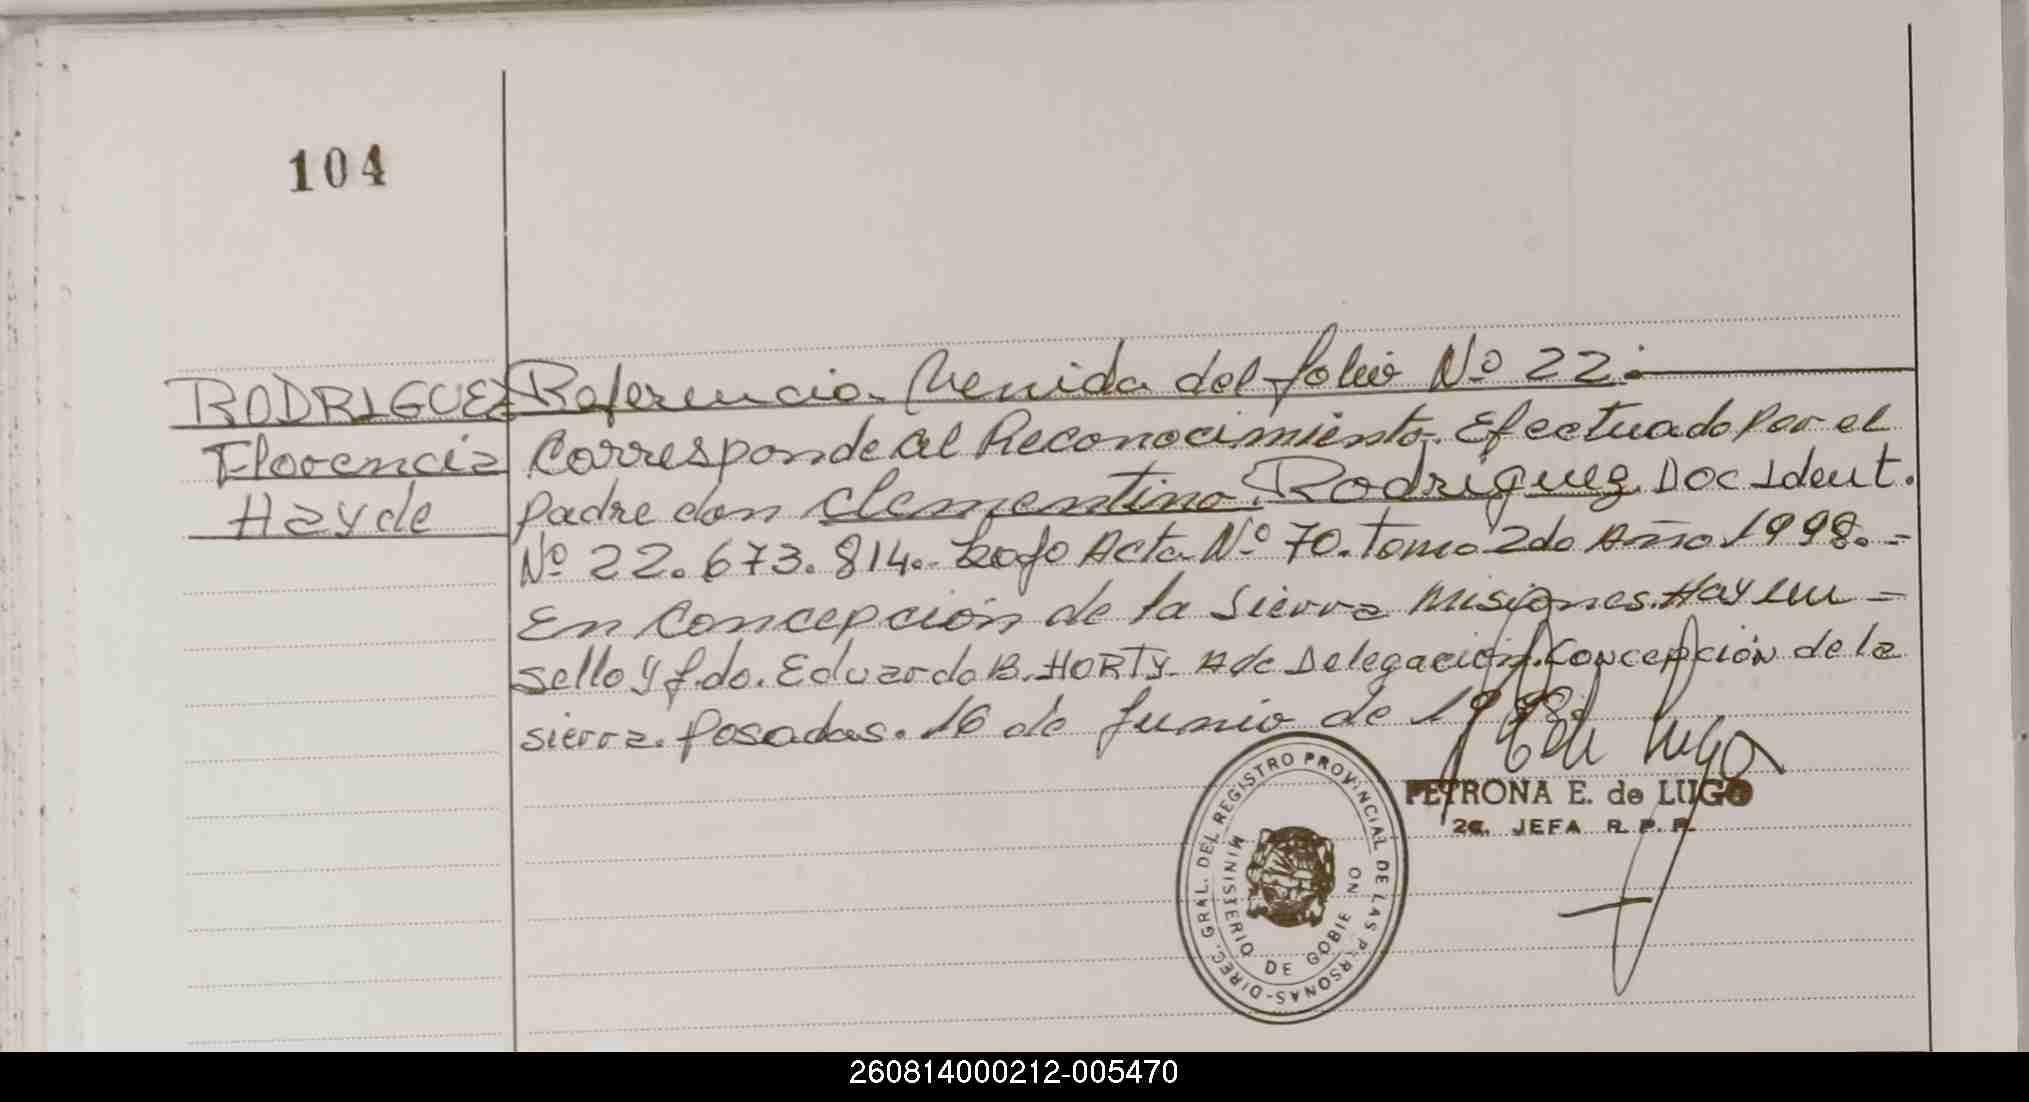 104
RODRIGUEZ
Florencia
Hayde
Referencia. Venida del folio Nº 22.
Corresponde al Reconocimiento. Efectuado por el
padre don Clementino. Rodriguez. Doc Ident.
Nº 22.673.814. bajo Acta Nº 70. Tomo 2do Año 1998.=
En Concepción de la Sierra Misiones. Hay un =
sello y f.do. Eduardo B. HORTY. Adc Delegación. Concepción de la
sierra. Posadas. 16 de Junio de 1998.
PETRONA E. de LUGO
2a. JEFA R. P. P.
DIREC. GRAL. DEL REGISTRO PROVINCIAL DE LAS PERSONAS-
MINISTERIO DE GOBIERNO
260814000212-005470